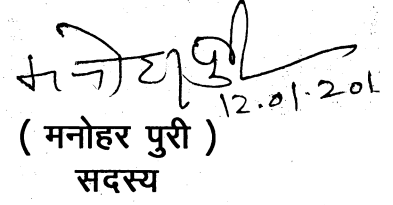 मनोहर पुरी
12.01.201
( मनोहर पुरी )
सदस्य